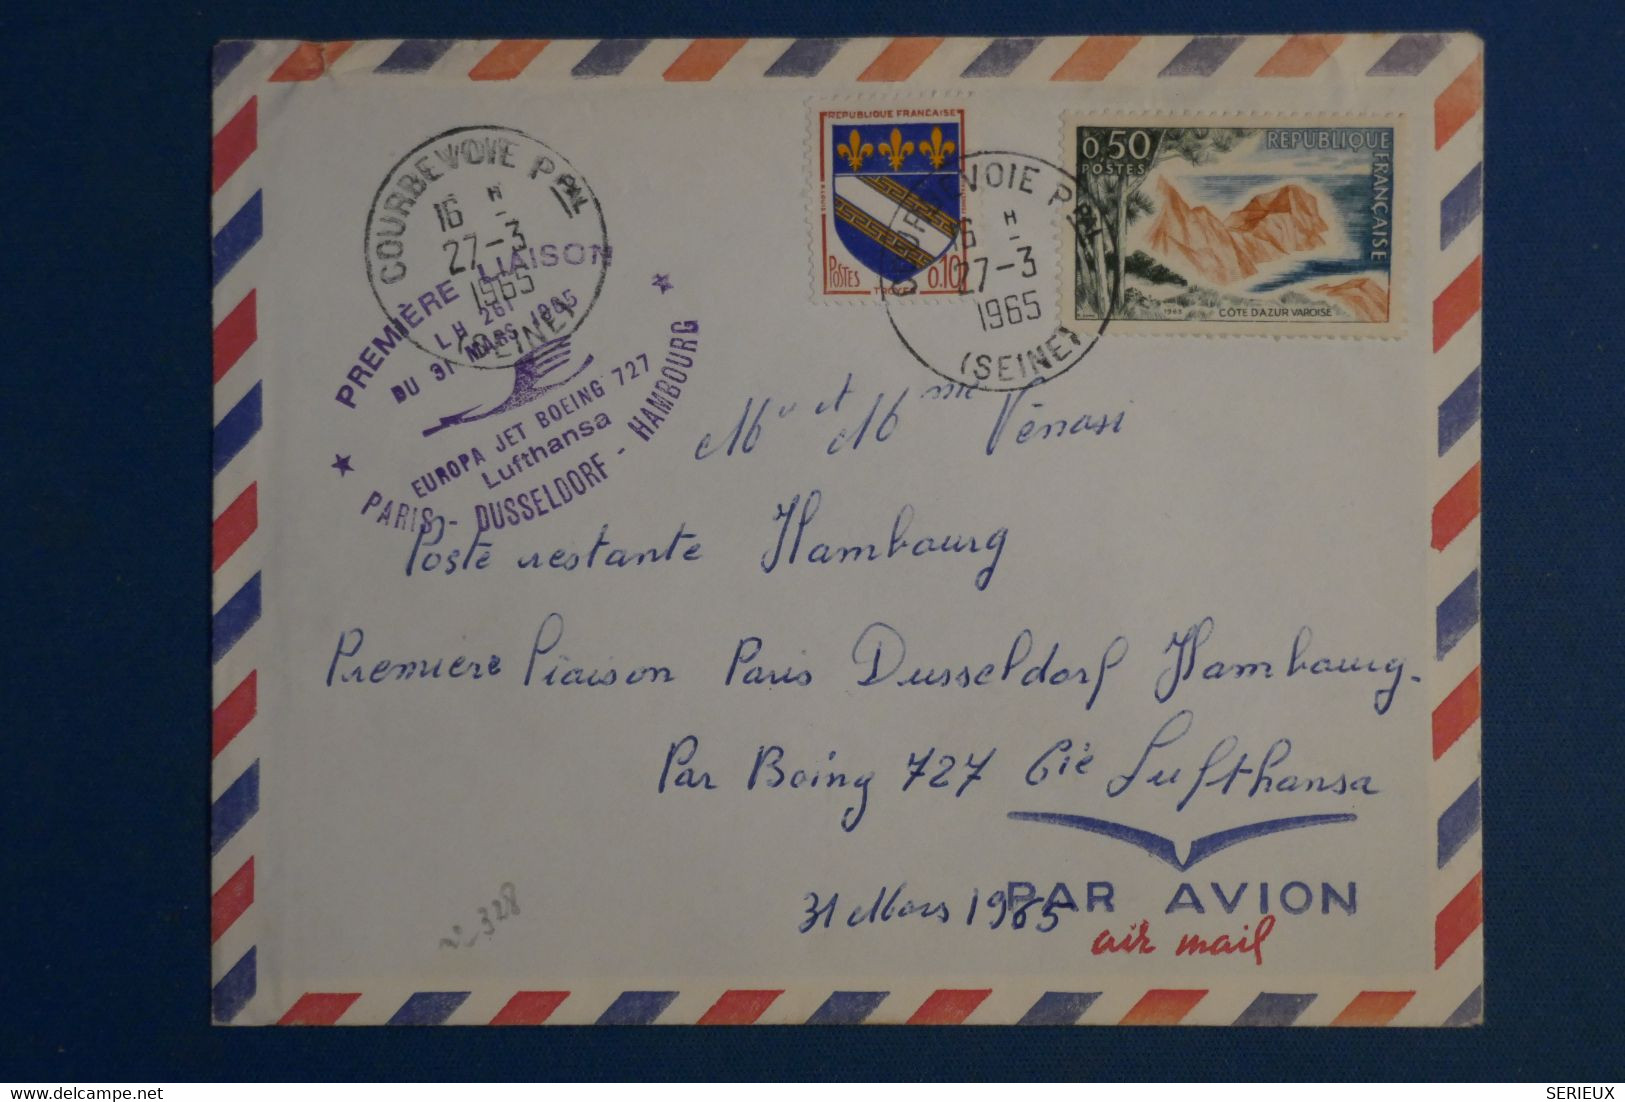 COURBEVOIE PPAL
16 H
27-3
1965
(SEINE)
PREMIÈRE LIAISON
LH 261
DU 31 MARS 1965
EUROPA JET BOEING 727
Lufthansa
PARIS - DUSSELDORF - HAMBOURG
REPUBLIQUE FRANCAISE
POSTES
0.10
TROYES
COURBEVOIE PPAL
16 H
27-3
1965
(SEINE)
0,50
POSTES
REPUBLIQUE FRANÇAISE
1963
CÔTE D'AZUR VAROISE
Mr et Mme Vénasi
Poste restante Hambourg
Premiere liaison Paris Dusseldorf Hambourg.
Par Boing 727 Cie Lufthansa
31 Mars 1965
PAR AVION
air mail
n° 328
SERIEUX
delcampe.net